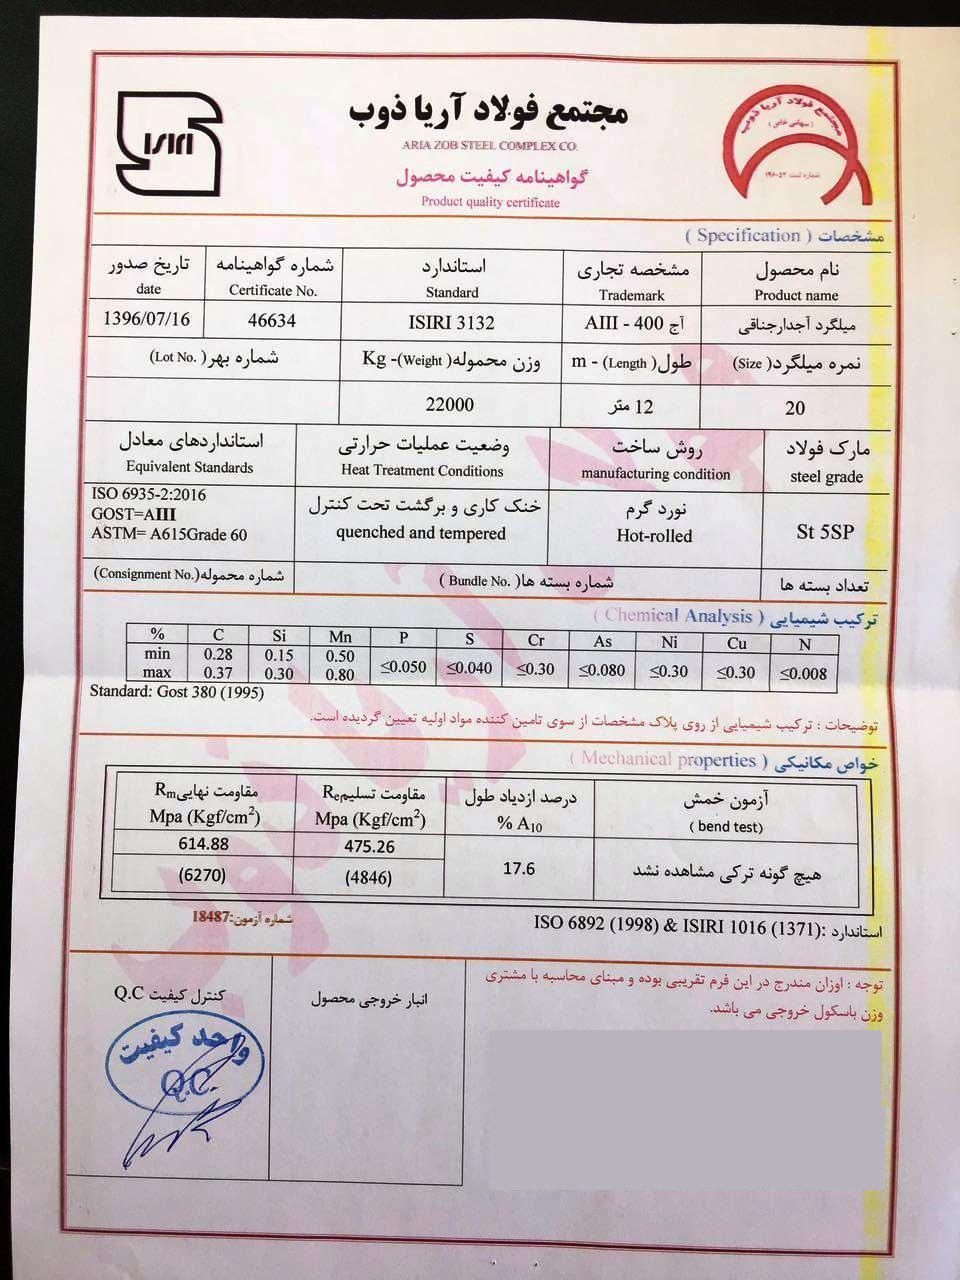 ISIRI
مجتمع فولاد آریا ذوب
ARIA ZOB STEEL COMPLEX CO.
گواهینامه کیفیت محصول
Product quality certificate
مجتمع فولاد آریا ذوب
(سهامی خاص)
مشخصات ( Specification )
نام محصول مشخصه تجاری استاندارد شماره گواهینامه تاریخ صدور
Product name Trademark Standard Certificate No. date
میلگرد آجدارجناقی آج 400 - AIII ISIRI 3132 46634 1396/07/16
نمره میلگرد( Size) طول( Length) - m وزن محموله( Weight)- Kg شماره بهر( Lot No.)
20 12 متر 22000
مارک فولاد روش ساخت وضعیت عملیات حرارتی استانداردهای معادل
steel grade manufacturing condition Heat Treatment Conditions Equivalent Standards
St 5SP نورد گرم خنک کاری و برگشت تحت کنترل ISO 6935-2:2016
Hot-rolled quenched and tempered GOST=AIII
ASTM= A615Grade 60
تعداد بسته ها شماره بسته ها( Bundle No. ) شماره محموله(Consignment No.)
ترکیب شیمیایی ( Chemical Analysis )
% C Si Mn P S Cr As Ni Cu N
min 0.28 0.15 0.50 ≤0.050 ≤0.040 ≤0.30 ≤0.080 ≤0.30 ≤0.30 ≤0.008
max 0.37 0.30 0.80
Standard: Gost 380 (1995)
توضیحات : ترکیب شیمیایی از روی پلاک مشخصات از سوی تامین کننده مواد اولیه تعیین گردیده است.
خواص مکانیکی ( Mechanical properties )
آزمون خمش درصد ازدیاد طول مقاومت تسلیم Re مقاومت نهایی Rm
( bend test) % A10 Mpa (Kgf/cm2) Mpa (Kgf/cm2)
هیچ گونه ترکی مشاهده نشد 17.6 475.26 614.88
(4846) (6270)
شماره آزمون:18487
استاندارد :ISO 6892 (1998) & ISIRI 1016 (1371)
توجه : اوزان مندرج در این فرم تقریبی بوده و مبنای محاسبه با مشتری
وزن باسکول خروجی می باشد.
انبار خروجی محصول
کنترل کیفیت Q.C
واحد کیفیت
Q.C.